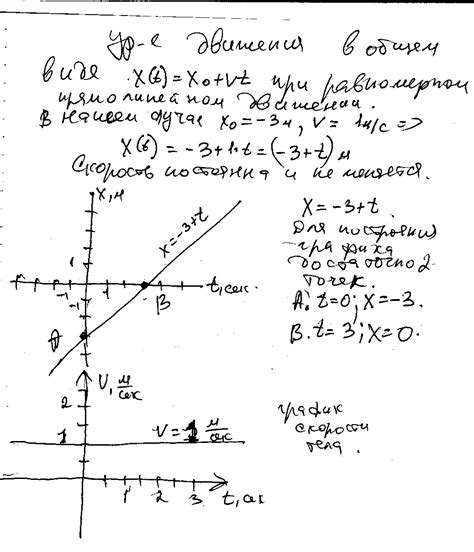 Ур-е движения в общем
виде X(t) = X₀ + Vt при равномерном
прямолинейном движении.
В нашем случае X₀ = -3м, V = 1м/с =>
X(t) = -3 + 1·t = (-3 + t) м
Скорость постоянна и не меняется.
X, м
X = -3 + t
1
-1
1
-1
B
t, сек.
A
X = -3 + t.
Для построения
графика
достаточно 2
точек.
A: t = 0; X = -3.
B. t = 3; X = 0.
V, м/сек
2
1
V = 1 м/сек
1 2 3 t, сек
график
скорости
тела.